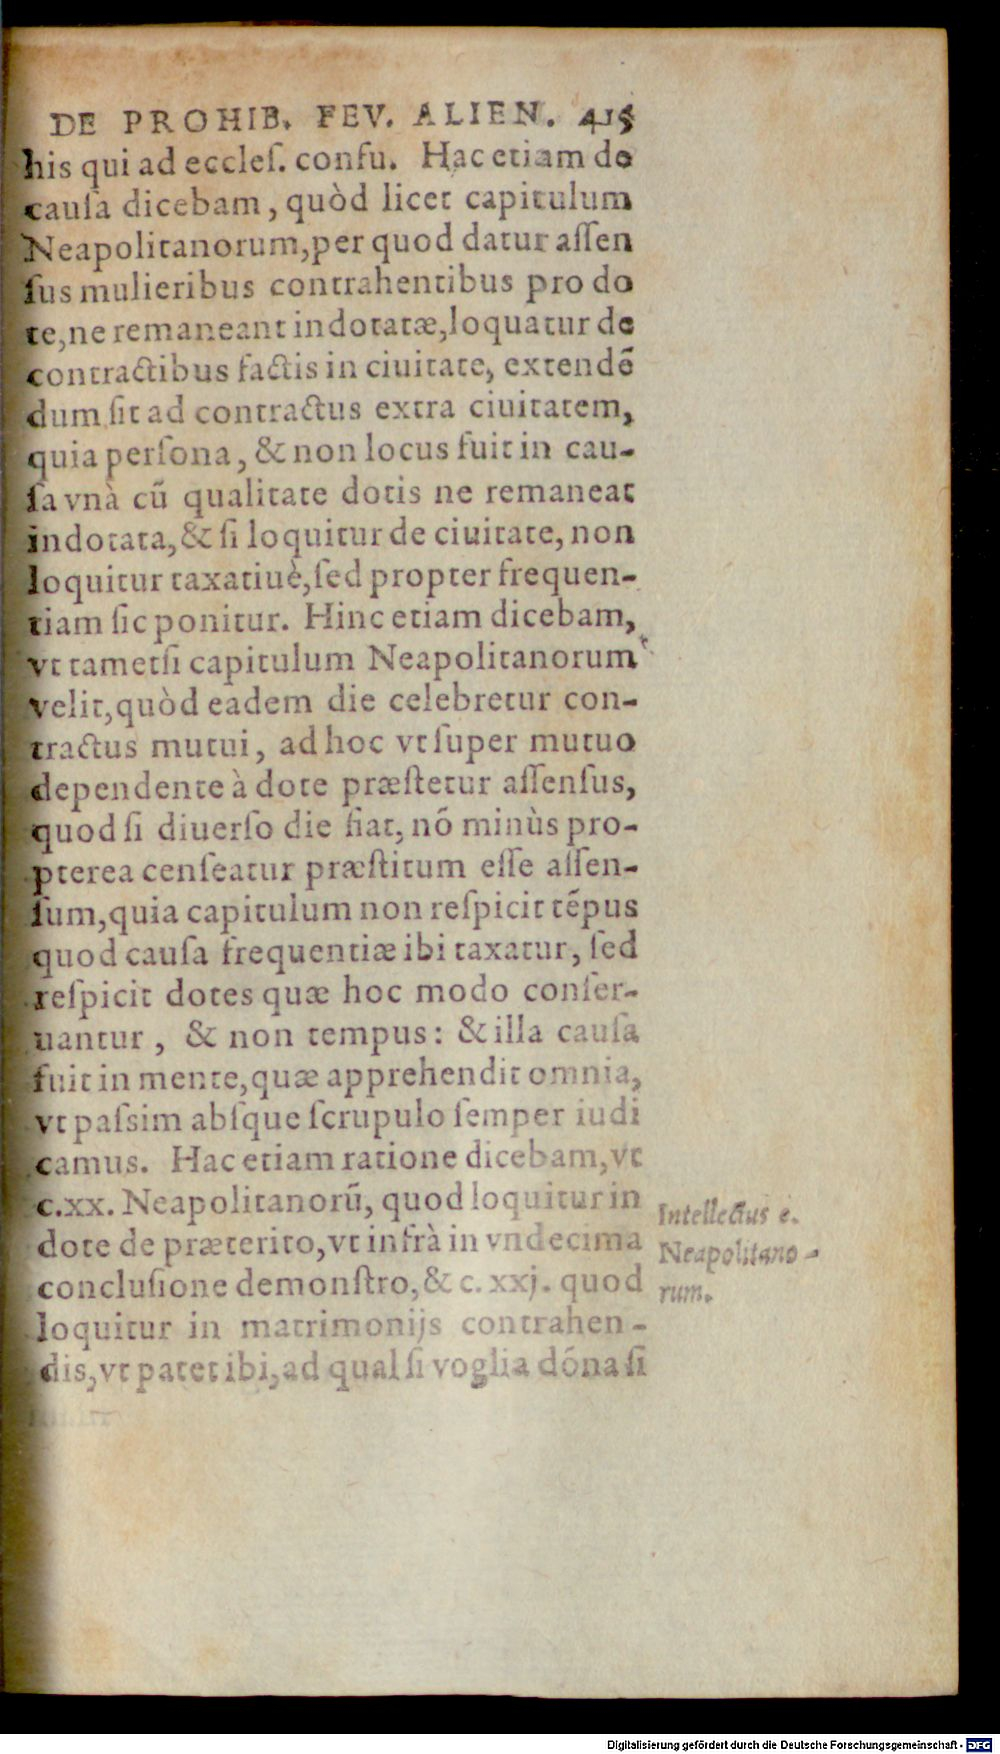 DE PROHIB. FEV. ALIEN. 415
his qui ad eccleſ. confu. Hac etiam de
cauſa dicebam, quòd licet capitulum
Neapolitanorum, per quod datur aſſen
ſus mulieribus contrahentibus pro do
te, ne remaneant indotatæ, loquatur de
contractibus factis in ciuitate, extendẽ
dum ſit ad contractus extra ciuitatem,
quia perſona, & non locus fuit in cau-
ſa vnà cũ qualitate dotis ne remaneat
indotata, & ſi loquitur de ciuitate, non
loquitur taxatiuè, ſed propter frequen-
tiam ſic ponitur. Hinc etiam dicebam,
vt tametſi capitulum Neapolitanorum
velit, quòd eadem die celebretur con-
tractus mutui, ad hoc vt ſuper mutuo
dependente à dote præſtetur aſſenſus,
quod ſi diuerſo die fiat, nõ minùs pro-
pterea cenſeatur præſtitum eſſe aſſen-
ſum, quia capitulum non reſpicit tẽpus
quod cauſa frequentiæ ibi taxatur, ſed
reſpicit dotes quæ hoc modo conſer-
uantur, & non tempus: & illa cauſa
fuit in mente, quæ apprehendit omnia,
vt paſsim abſque ſcrupulo ſemper iudi
camus. Hac etiam ratione dicebam, vt
c.xx. Neapolitanorũ, quod loquitur in
dote de præterito, vt infrà in vndecima
concluſione demonſtro, & c. xxj. quod
loquitur in matrimonijs contrahen-
dis, vt patet ibi, ad qual ſi voglia dõna ſi
Intellectus c.
Neapolitano-
rum.
Digitalisierung gefördert durch die Deutsche Forschungsgemeinschaft - DFG